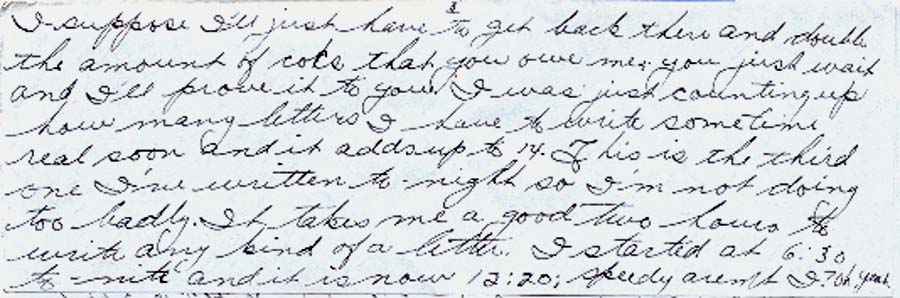 3
I suppose I'll just have to get back there and double
the amount of cokes that you owe me; you just wait
and I'll prove it to you! I was just counting up
how many letters I have to write sometime
real soon and it adds up to 14. This is the third
one I've written to night so I'm not doing
too badly. It takes me a good two hours to
write any kind of a letter. I started at 6:30
to-nite and it is now 12:20; speedy aren't I? Oh yeah.